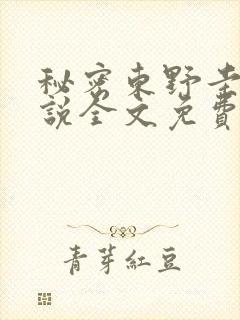 秘密東野圭
說全文免費
青芽紅豆